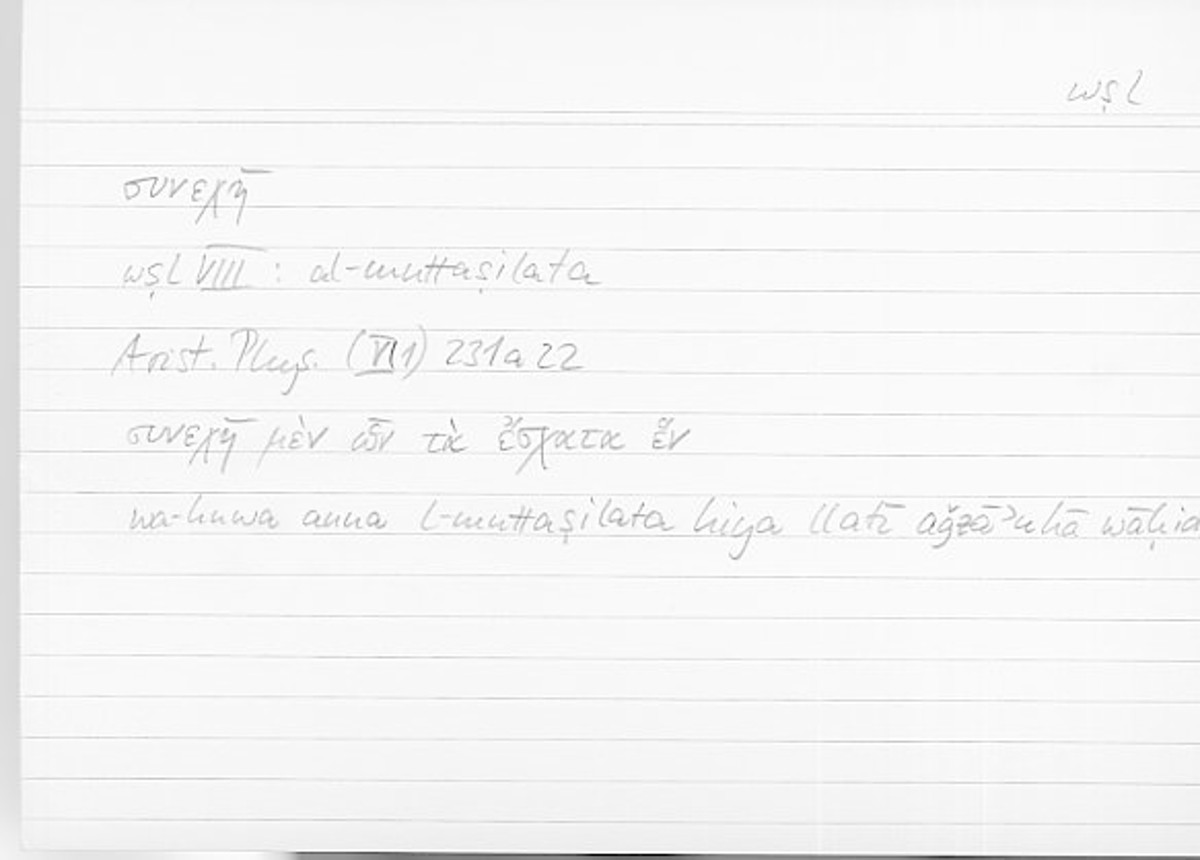 wṣl
συνεχῆ
wṣl VIII : al-muttaṣilata
Arist. Phys. (VI 1) 231a22
συνεχῆ μὲν ὧν τὰ ἔσχατα ἕν
wa-huwa anna l-muttaṣilata hiya llatī aǧzāʾuhā wāḥida